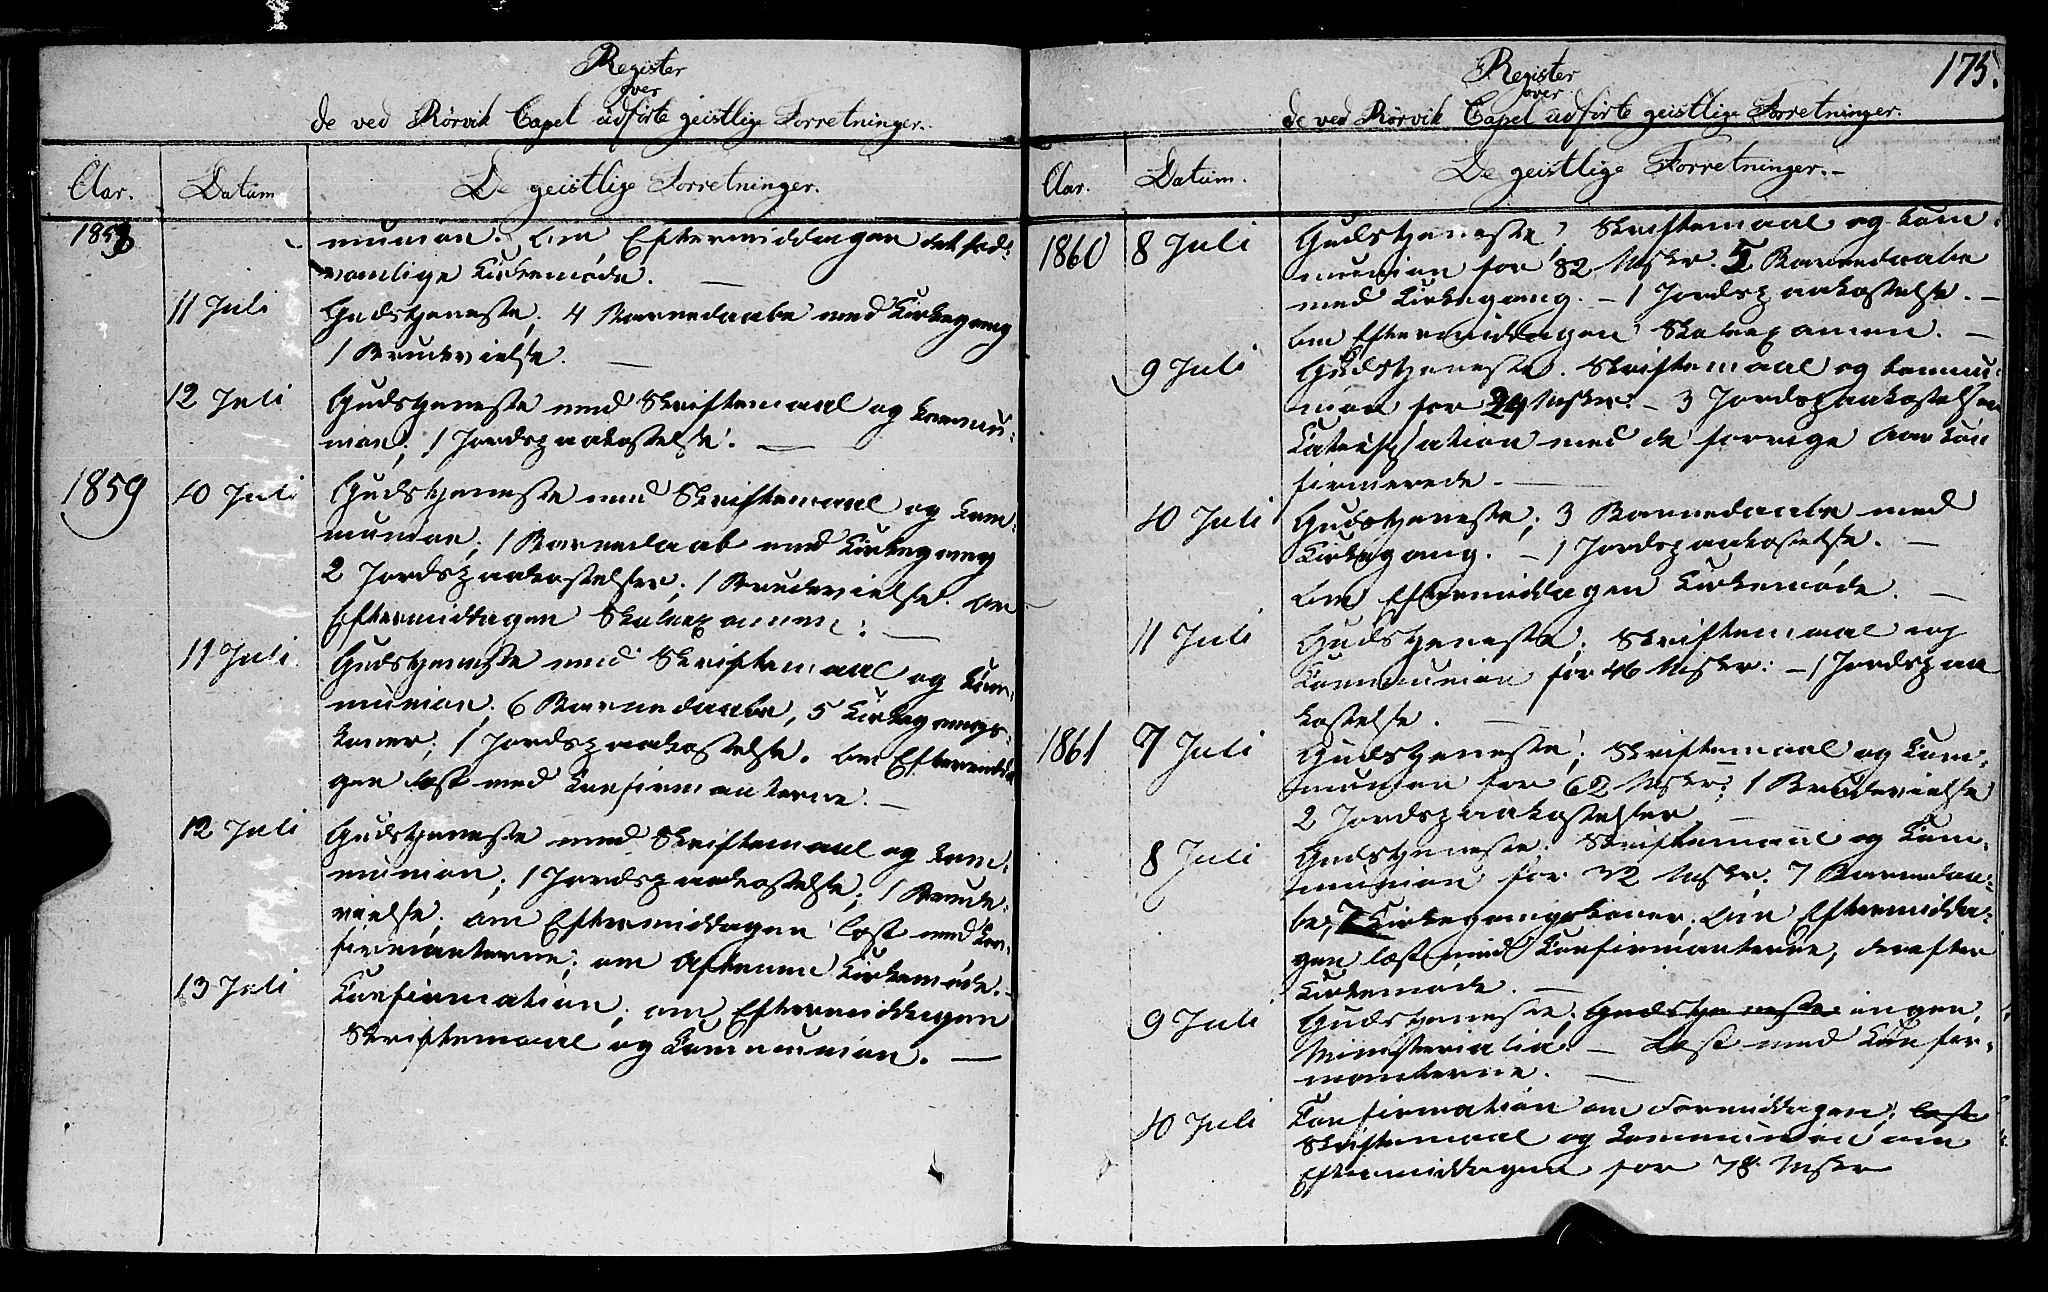 Register
over
de ved Rørvik Capel udførte geistlige Forretninger.
Aar.
Datum
De geistlige Forretninger.
1858
munion. Om Eftermiddagen det sæd-
vanlige Kirkemøde. —
11 Juli
Gudstjeneste; 4 Barnedaabe med Kirkegang
1 Brudevielse. —
12 Juli
Gudstjeneste med Skriftemaal og Kommu-
nion; 1 Jordspaakastelse. —
1859
10 Juli
Gudstjeneste med Skriftemaal og Kom-
munion; 1 Barnedaab med Kirkegang
2 Jordspaakastelser; 1 Brudevielse. Om
Eftermidtagen Skoleexamen. —
11 Juli
Gudstjeneste med Skriftemaal og Kom-
munion. 6 Barnedaabe, 5 Kirkegangs-
koner; 1 Jordspaakastelse. Om Eftermidda
gen læst med Konfirmanterne. —
12 Juli
Gudstjeneste med Skriftemaal og Kom-
munion; 1 Jordspaakastelse; 1 Brude-
vielse; om Eftermiddagen læst med Kon-
firmanterne; om Aftenen Kirkemøde. —
13 Juli
Confirmation; om Eftermiddagen
Skriftemaal og Kommunion. —
175.
Register
over
de ved Rørvik Capel udførte geistlige Forretninger.
Aar.
Datum.
De geistlige Forretninger. —
1860
8 Juli
Gudstjeneste; Skriftemaal og Kom-
munion for 82 Msker. 5 Barnedaabe
med Kirkegang. — 1 Jordspaakastelse. —
Om Eftermidtagen Skoleexamen. —
9 Juli
Gudstjeneste. Skriftemaal og Kommu-
nion for 24 Msker. — 3 Jordspaakastelser
Katekisation med de forrige Aar Kon
firmerede. —
10 Juli
Gudstjeneste; 3 Barnedaabe med
Kirkegang. — 1 Jordspaakastelse. —
Om Eftermiddagen Kirkemøde. —
11 Juli
Gudstjeneste; Skriftemaal og
Kommunion for 46 Msker: — 1 Jordspaa
kastelse. —
1861
7 Juli
Gudstjeneste; Skriftemaal og Kom-
munion for 62 Msker; 1 Brudevielse
2 Jordspaakastelser —
8 Juli
Gudstjeneste; Skriftemaal og Kom-
munion for 32 Msker; 7 Barnedaa-
be; 7 Kirkegangskoner; Om Eftermidda-
gen læst med Konfirmanterne, derefter
Kirkemøde. —
9 Juli
Gudstjeneste; Gudstjeneste ingen
Ministerialia. — Læst med Konfir-
manterne. —
10 Juli
Confirmation om Formiddagen; læst
Skriftemaal og Kommunion om
Eftermiddagen for 78 Msker